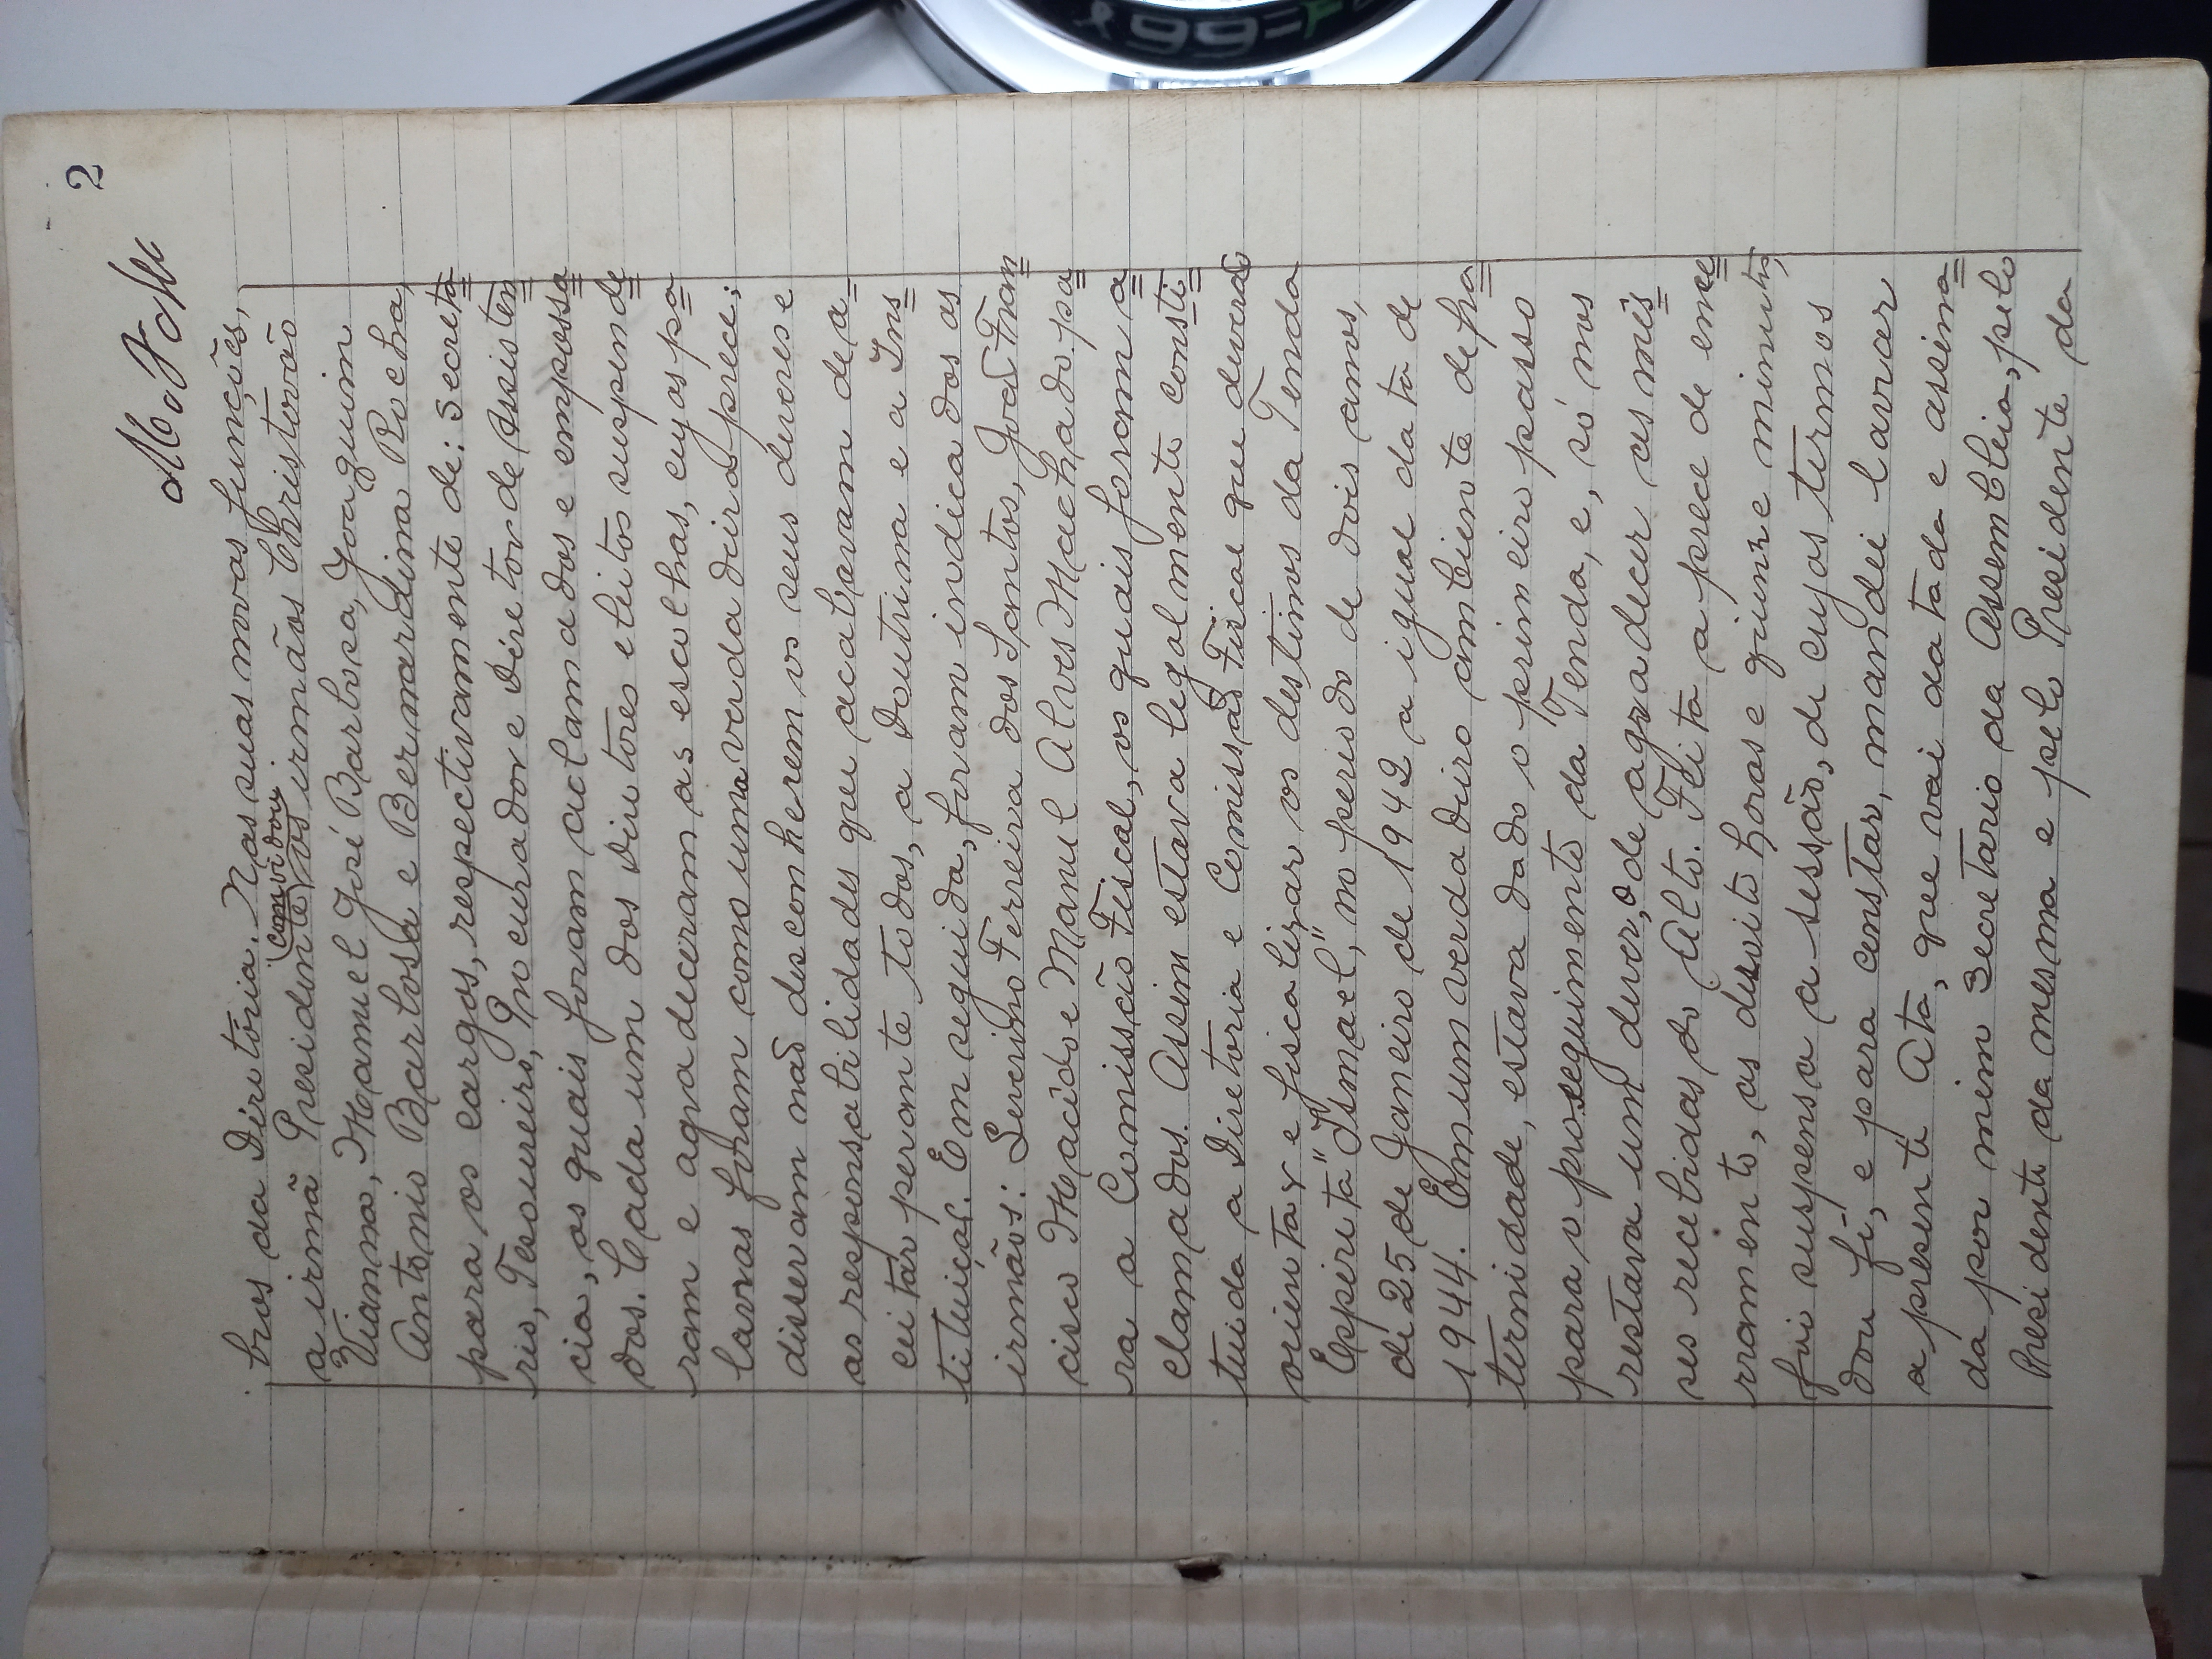 2
bros da Diretoria. Nas suas novas funções,
(convidou)
a irmã Presidente os irmãos Christovão
Vianna, Manuel José Barbosa, Joaquim
Antonio Barbosa e Bernardina Rocha,
para os cargos, respectivamente de: secreta=
rio, Tesoureiro, Procurador e Diretor de Assisten=
cia, os quais foram aclamados e empossa=
dos. Cada um dos Diretores eleitos suspende=
ram e agradeceram as escolhas, cujas pa=
lavras foram como uma verdadeira prece;
disseram não desconherem os seus deveres e
as responsabilidades que acabavam de a=
ceitar perante todos, a Doutrina e a Ins=
tituição. Em seguida, foram indicados os
irmãos: Severino Ferreira dos Santos, João Fran=
cisco Macido e Manuel Alves Machado pa=
ra a Comissão Fiscal, os quais foram a=
clamados. Assim estava legalmente consti=
tuida a Diretoria e Comissão Fiscal que deverão
orientar e fiscalizar os destinos da Tenda
Espirita "Ismael", no periodo de dois anos,
de 25 de Janeiro de 1942 a igual data de
1944. Em um verdadeiro ambiente de fra=
ternidade, estava dado o primeiro passo
para o proseguimento da Tenda, e, só nos
restava um dever, o de agradecer as mês=
ses recebidas do Alto. Feita a prece de ence=
rramento, as dezoito horas e quinze minutos,
foi suspensa a sessão, de cujos termos
dou fé, e para constar, mandei lavrar
a presente Ata, que vai datada e assina=
da por mim Secretario da Assembleia, pelo
Presidente da mesma e pelo Presidente da